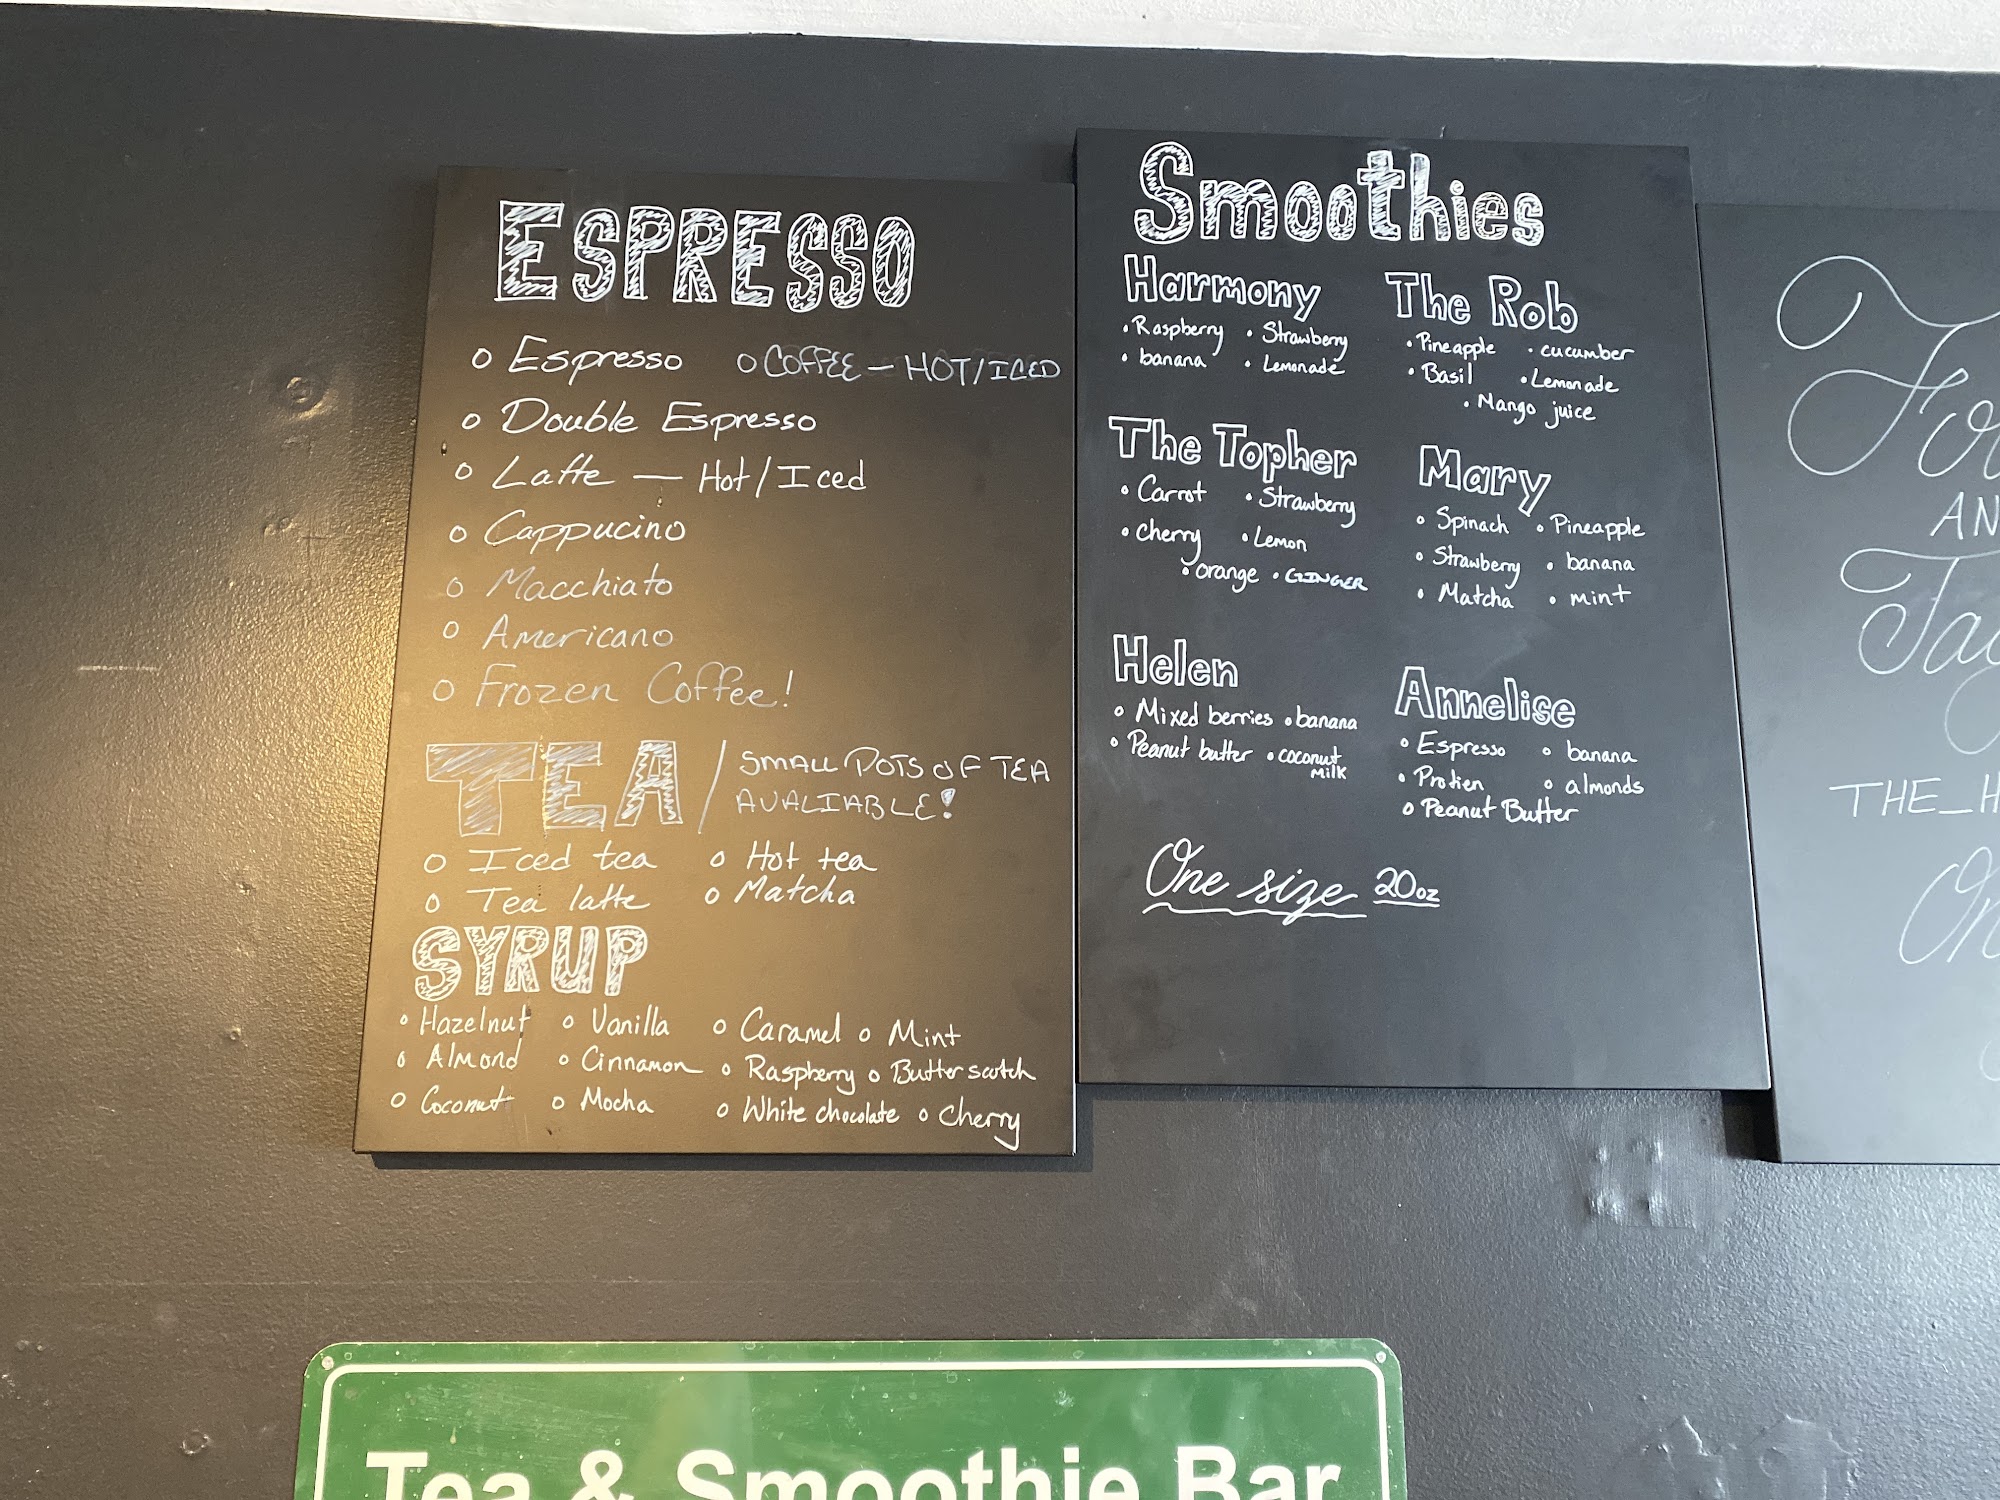 ESPRESSO
Espresso COFFEE — HOT/ICED
Double Espresso
Latte — Hot/Iced
Cappucino
Macchiato
Americano
Frozen Coffee!
TEA / SMALL POTS OF TEA
AVALIABLE!
Iced tea Hot tea
Tea latte Matcha
SYRUP
Hazelnut Vanilla Caramel Mint
Almond Cinnamon Raspberry Butterscotch
Coconut Mocha White chocolate Cherry
Smoothies
Harmony
Raspberry Strawberry
banana Lemonade
The Rob
Pineapple cucumber
Basil Lemonade
Mango juice
The Topher
Carrot Strawberry
Cherry Lemon
orange GINGER
Mary
Spinach Pineapple
Strawberry banana
Matcha mint
Helen
Mixed berries banana
Peanut butter coconut
milk
Annelise
Espresso banana
Protien almonds
Peanut Butter
One size 20oz
THE_H
Tea & Smoothie Bar